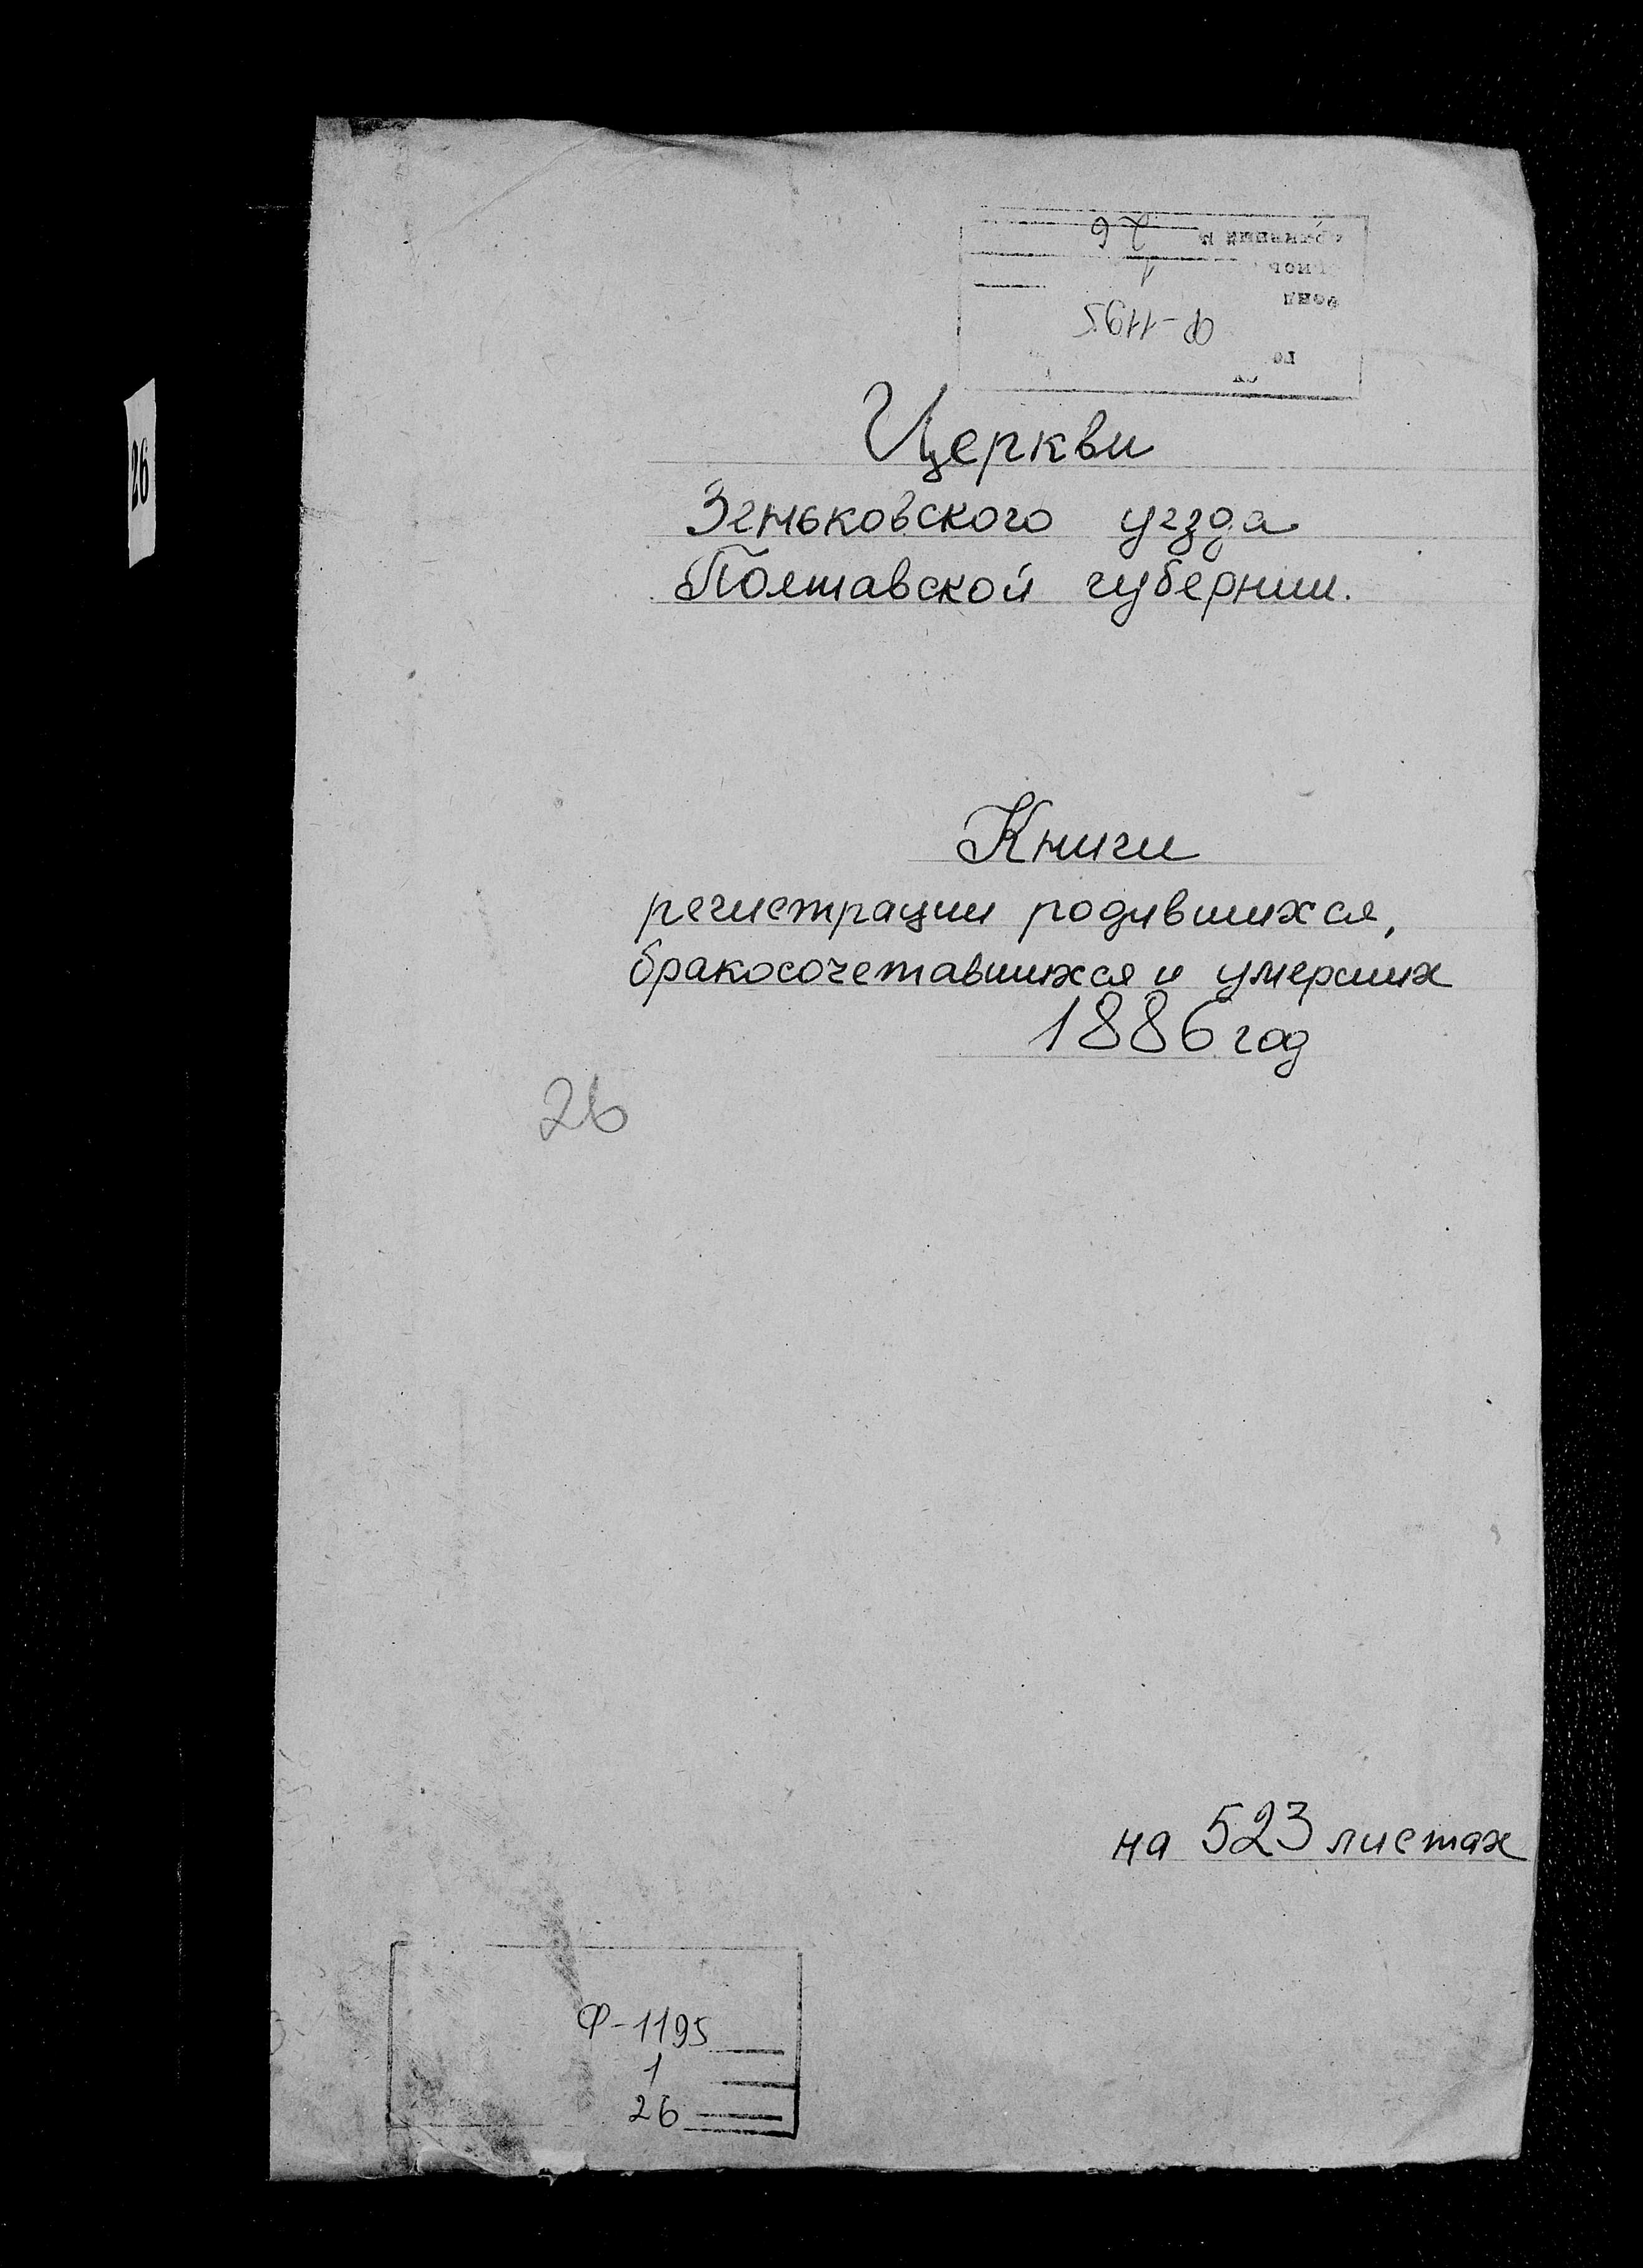 26
Ф-1195
Церкви
Зеньковского уезда
Полтавской губернии.
Книги
регистрации родившихся,
бракосочетавшихся и умерших
1886 год
26
на 523 листах
Ф-1195
1
26
26